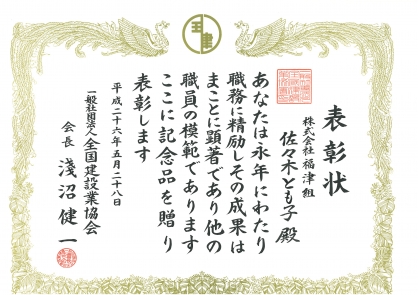 表彰状
株式会社福津組
佐々木とも子殿
あなたは永年にわたり
職務に精励しその成果は
まことに顕著であり他の
職員の模範であります
ここに記念品を贈り
表彰します
平成二十六年五月二十八日
一般社団法人全国建設業協会
会長 淺沼健一